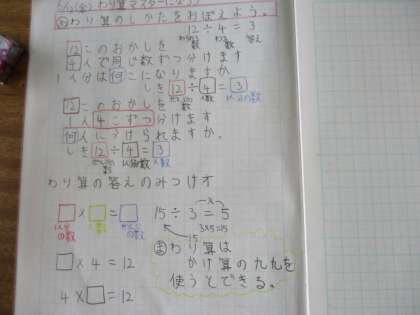 5/12(金) わり算マスターになろう
め わり算のしかたをおぼえよう。
12÷4=3
わられる数 わる数 答え
12このおかしを
4人で同じ数ずつ分けます
1人分は何こになりますか
しき 12÷4=3
人数 1人分の数
12このおかしを
1人4こずつ分けます
何人に分けられますか。
しき 12÷4=3
人数
わり算の答えのみつけオ
□×□=□
1人分の数 人数
15÷3=5
3×5=15
□×4=12
4×□=12
ま わり算は
かけ算の九九を
使うとできる。